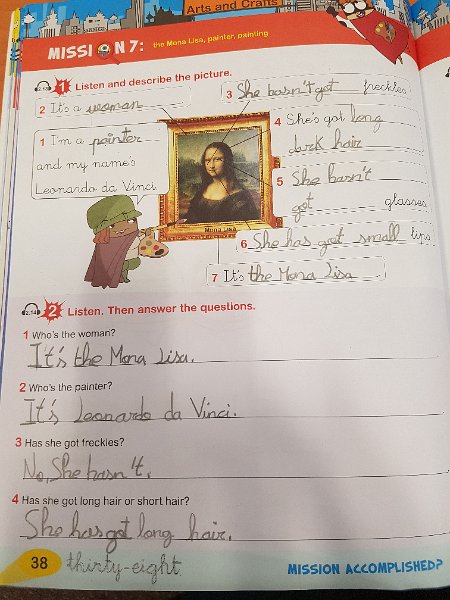 Arts and Crafts
MISSION 7: the Mona Lisa, painter, painting
2.13 1 Listen and describe the picture.
2 It's a woman
3 She hasn't got freckles
1 I'm a painter
and my name's
Leonardo da Vinci
4 She's got long
dark hair
5 She hasn't
got glasses
MONA LISA
6 She has got small lips
7 It's the Mona Lisa
2.14 2 Listen. Then answer the questions.
1 Who's the woman?
It's the Mona Lisa.
2 Who's the painter?
It's Leonardo da Vinci.
3 Has she got freckles?
No, She hasn't.
4 Has she got long hair or short hair?
She has got long hair.
38 thirty-eight
MISSION ACCOMPLISHED?